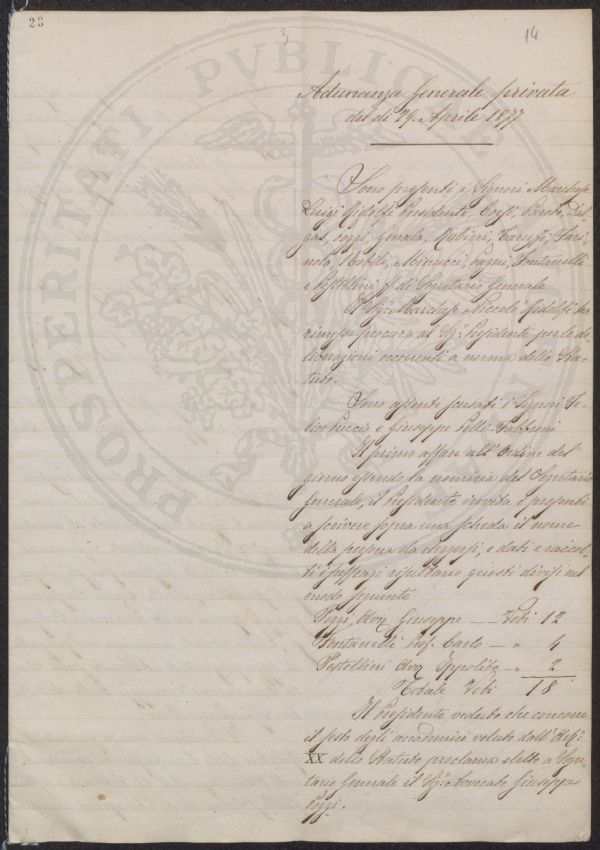 28
3
14
PROSPERITATI PVBLICAE
Adunanza Generale privata
del dì 29. Aprile 1877
Sono presenti i Signori Marchese
Luigi Ridolfi Presidente,
nola, Nobili, Minucci, Fontanelli
e Pestellini ff. di Segretario Generale
Il Sig.r Marchese Niccolò Ridolfi ha
rimessa procura al Sig.r Presidente per le de-
liberazioni occorrenti a norma dello Sta-
tuto.
Sono assenti scusati i Signori Fe-
lice Puccio e Giuseppe delle
Il primo affare all'Ordine del
giorno essendo la nomina del Segretario
Generale, il Presidente invita i presenti
a scrivere sopra una scheda il nome
della persona da eleggersi, e dati e raccol-
ti i suffragi risultano questi divisi nel
modo seguente
Poggi Avv. Giuseppe — Voti 12
Fontanelli Prof. Carlo — " 4
Pestellini Avv. Ippolito — " 2
Totale Voti 18
Il Presidente veduto che concorre
il sesto degli accademici voluto dall'Art.o
XX dello Statuto proclama eletto a Segre-
tario Generale il Sig.r Avvocato Giuseppe
Poggi.